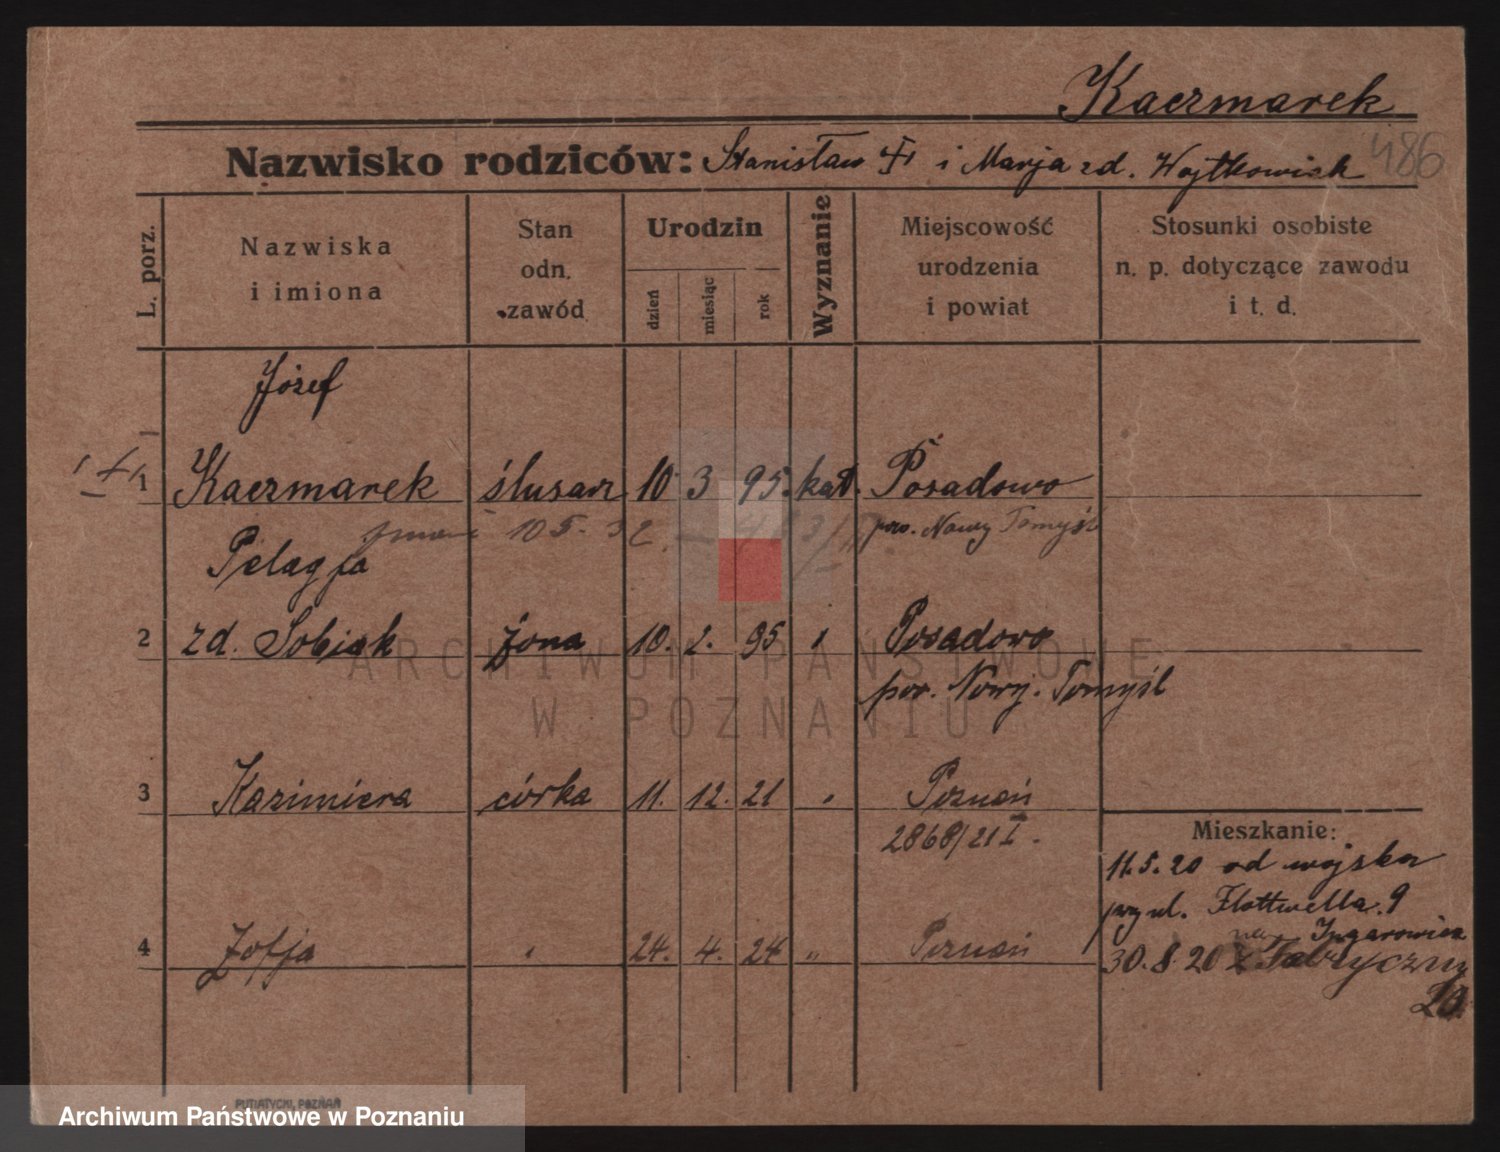 Kaczmarek
486
Nazwisko rodziców: Stanisław i Marja zd. Wojtkowiak
L. porz.
Nazwiska
i imiona
Stan
odn.
zawód
Urodzin
dzień
miesiąc
rok
Wyznanie
Miejscowość
urodzenia
i powiat
Stosunki osobiste
n. p. dotyczące zawodu
i t. d.
Józef
1 Kaczmarek ślusarz 10 3 95. kat. Posadowo
10 5. 32 pow. Nowy Tomyśl
Pelagja
2 zd. Sobiak żona 10. 2. 95 Posadowo
pow. Nowy. Tomyśl
3 Kazimiera córka 11. 12. 21 Poznań
2868/21 I.
4 Zofja 24. 4. 24 " Poznań
Mieszkanie:
11.5.20 od wojska
przy ul. Flottwella. 9
30.8.20 Fabryczny
ARCHIWUM PAŃSTWOWE
W POZNANIU
PUTIATYCKI, POZNAŃ
Archiwum Państwowe w Poznaniu